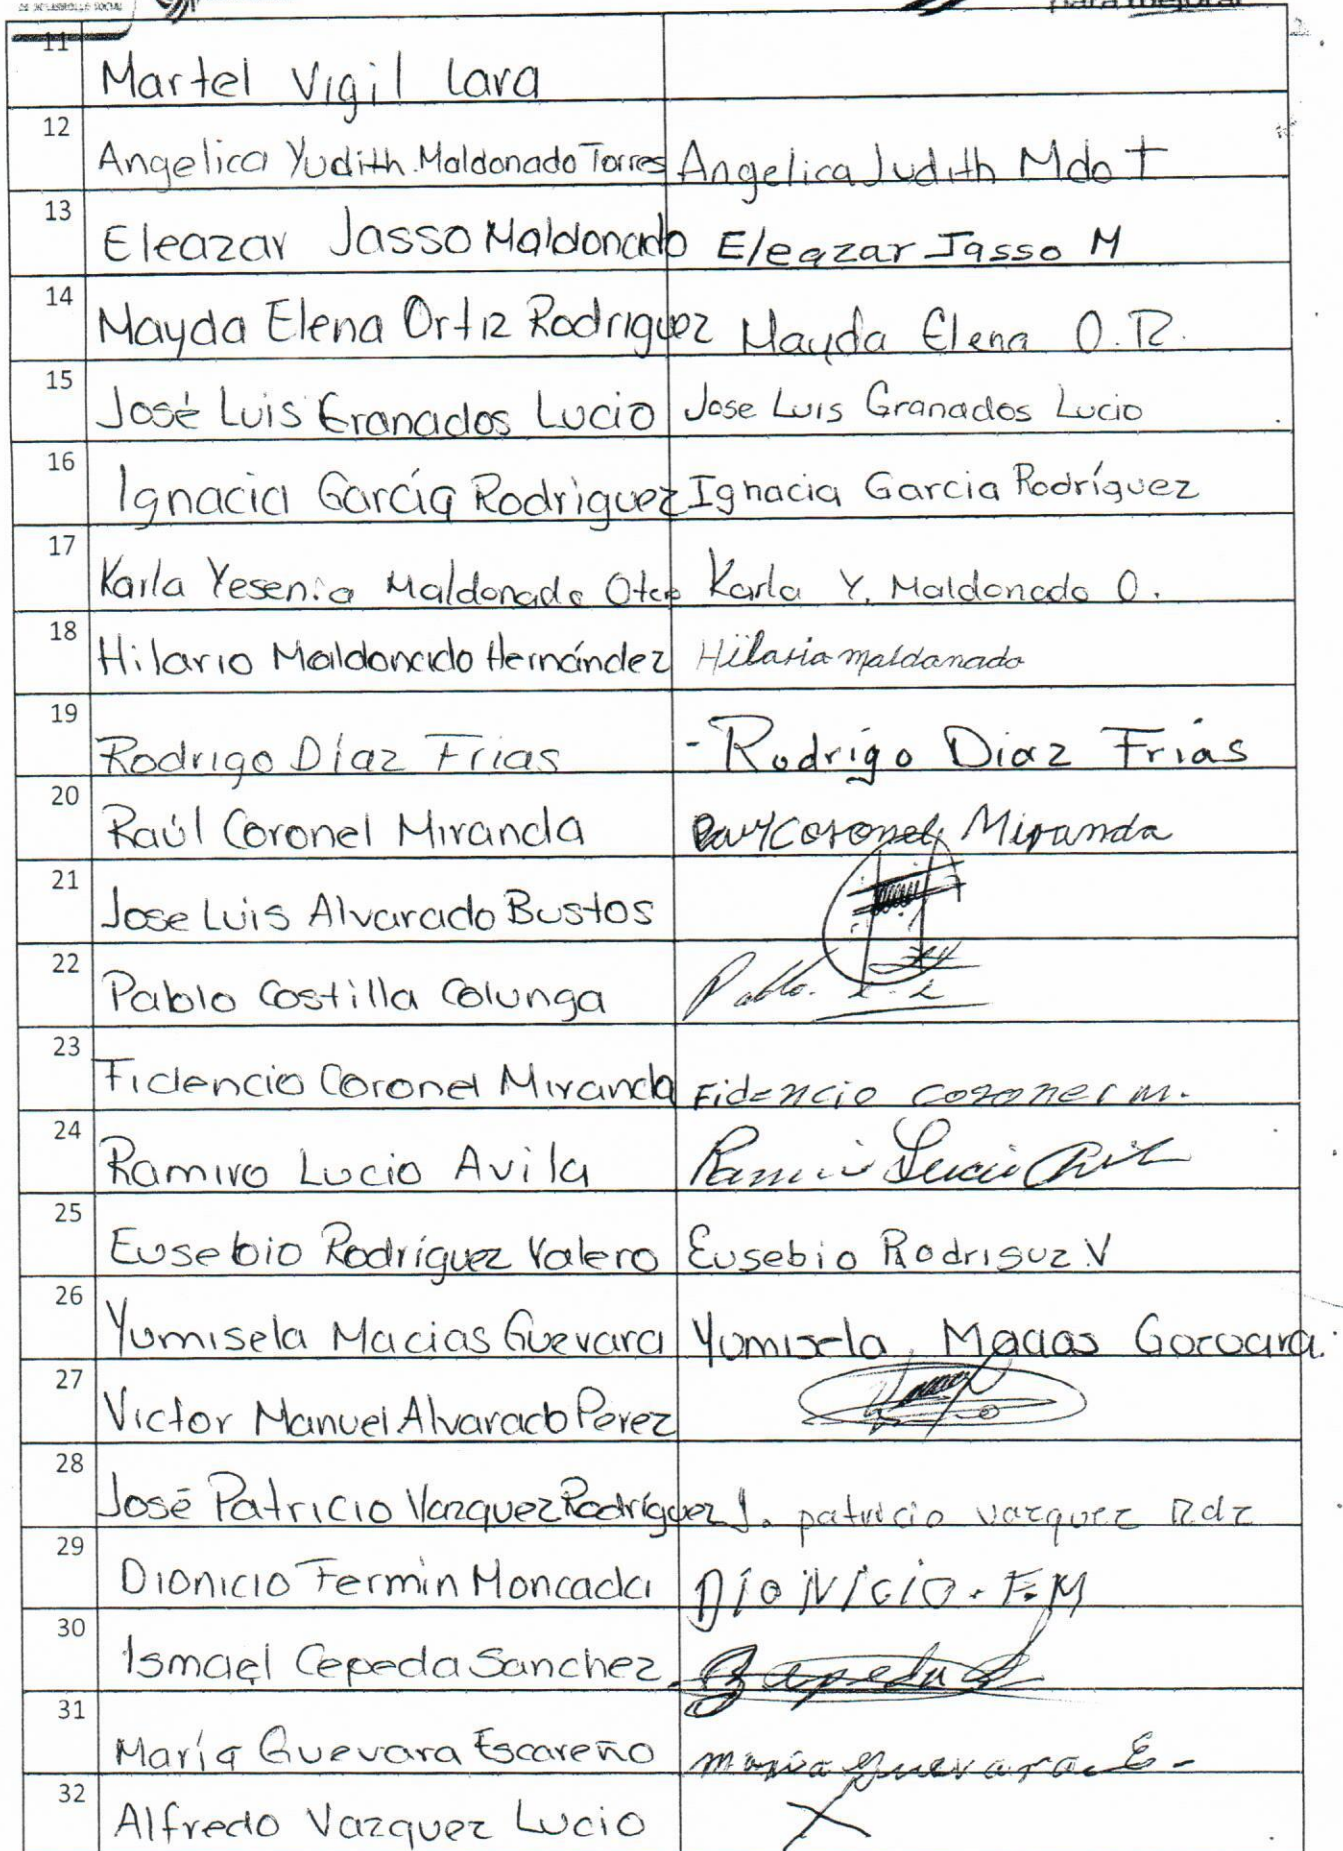 DE DESARROLLO SOCIAL
para mejorar
11 Martel Vigil Lara
12 Angelica Yudith Maldonado Torres Angelica Judith Mdo T
13 Eleazar Jasso Maldonado Eleazar Jasso M
14 Mayda Elena Ortiz Rodriguez Mayda Elena O.R.
15 José Luis Granados Lucio Jose Luis Granados Lucio
16 Ignacia García Rodriguez Ignacia Garcia Rodríguez
17 Karla Yesenia Maldonado Karla Y. Maldonado O.
18 Hilario Maldonado Hernández Hilario maldanado
19 Rodrigo Díaz Frias - Rodrigo Diaz Frias
20 Raúl Coronel Miranda Raul Coronel Miranda
21 Jose Luis Alvarado Bustos
22 Pablo Costilla Colunga Pablo.
23 Fidencio Coronel Miranda Fidencio coronel M.
24 Ramiro Lucio Avila Ramiro Lucio
25 Eusebio Rodríguez Valero Eusebio Rodrisuz V
26 Yumisela Macias Guevara Yumisela
27 Victor Manuel Alvarado Perez
28 José Patricio Vazquez Rodríguez J. patricio vazquez Rdz
29 Dionicio Fermin Moncada DIONICIO. F.M
30 Ismael Cepeda Sanchez
31 María Guevara Escareño maria guevara. E-
32 Alfredo Vazquez Lucio X